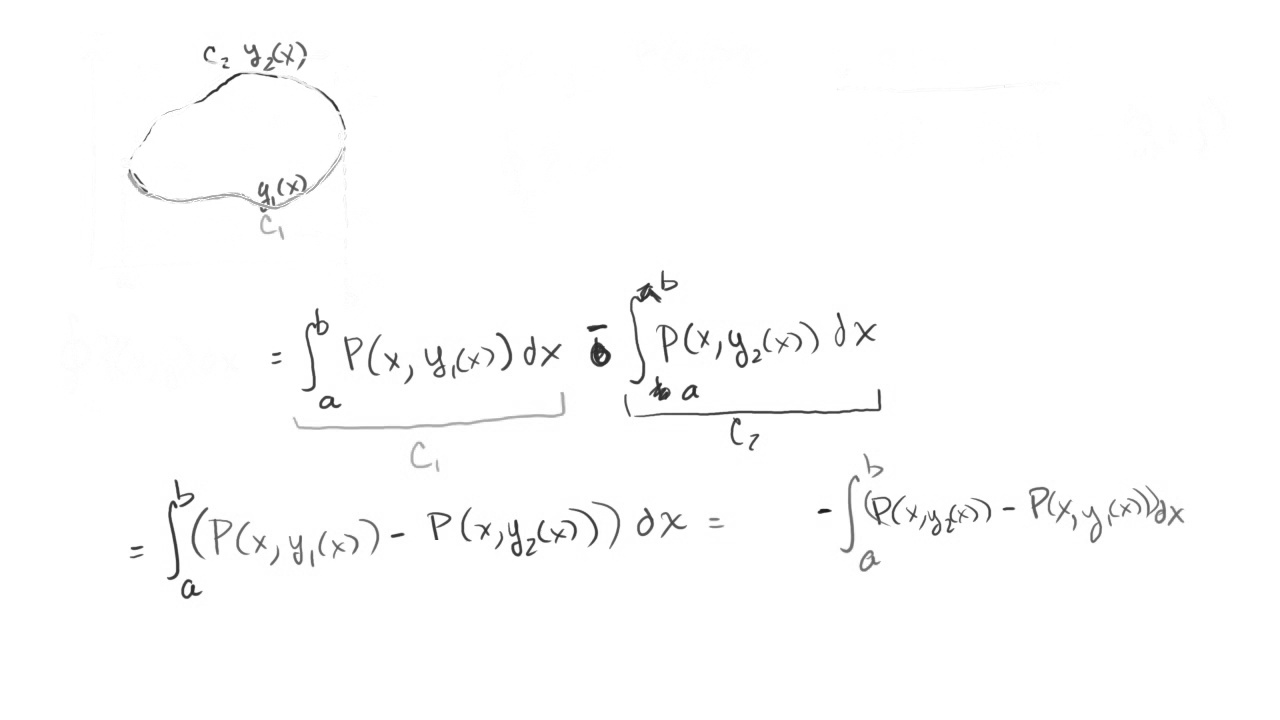 C₂ y₂(x)
y₁(x)
C₁
= ∫ₐᵇ P(x, y₁(x)) dx - ∫ₐᵇ P(x, y₂(x)) dx
C₁ C₂
= ∫ₐᵇ (P(x, y₁(x)) - P(x, y₂(x))) dx = - ∫ₐᵇ (P(x, y₂(x)) - P(x, y₁(x))) dx